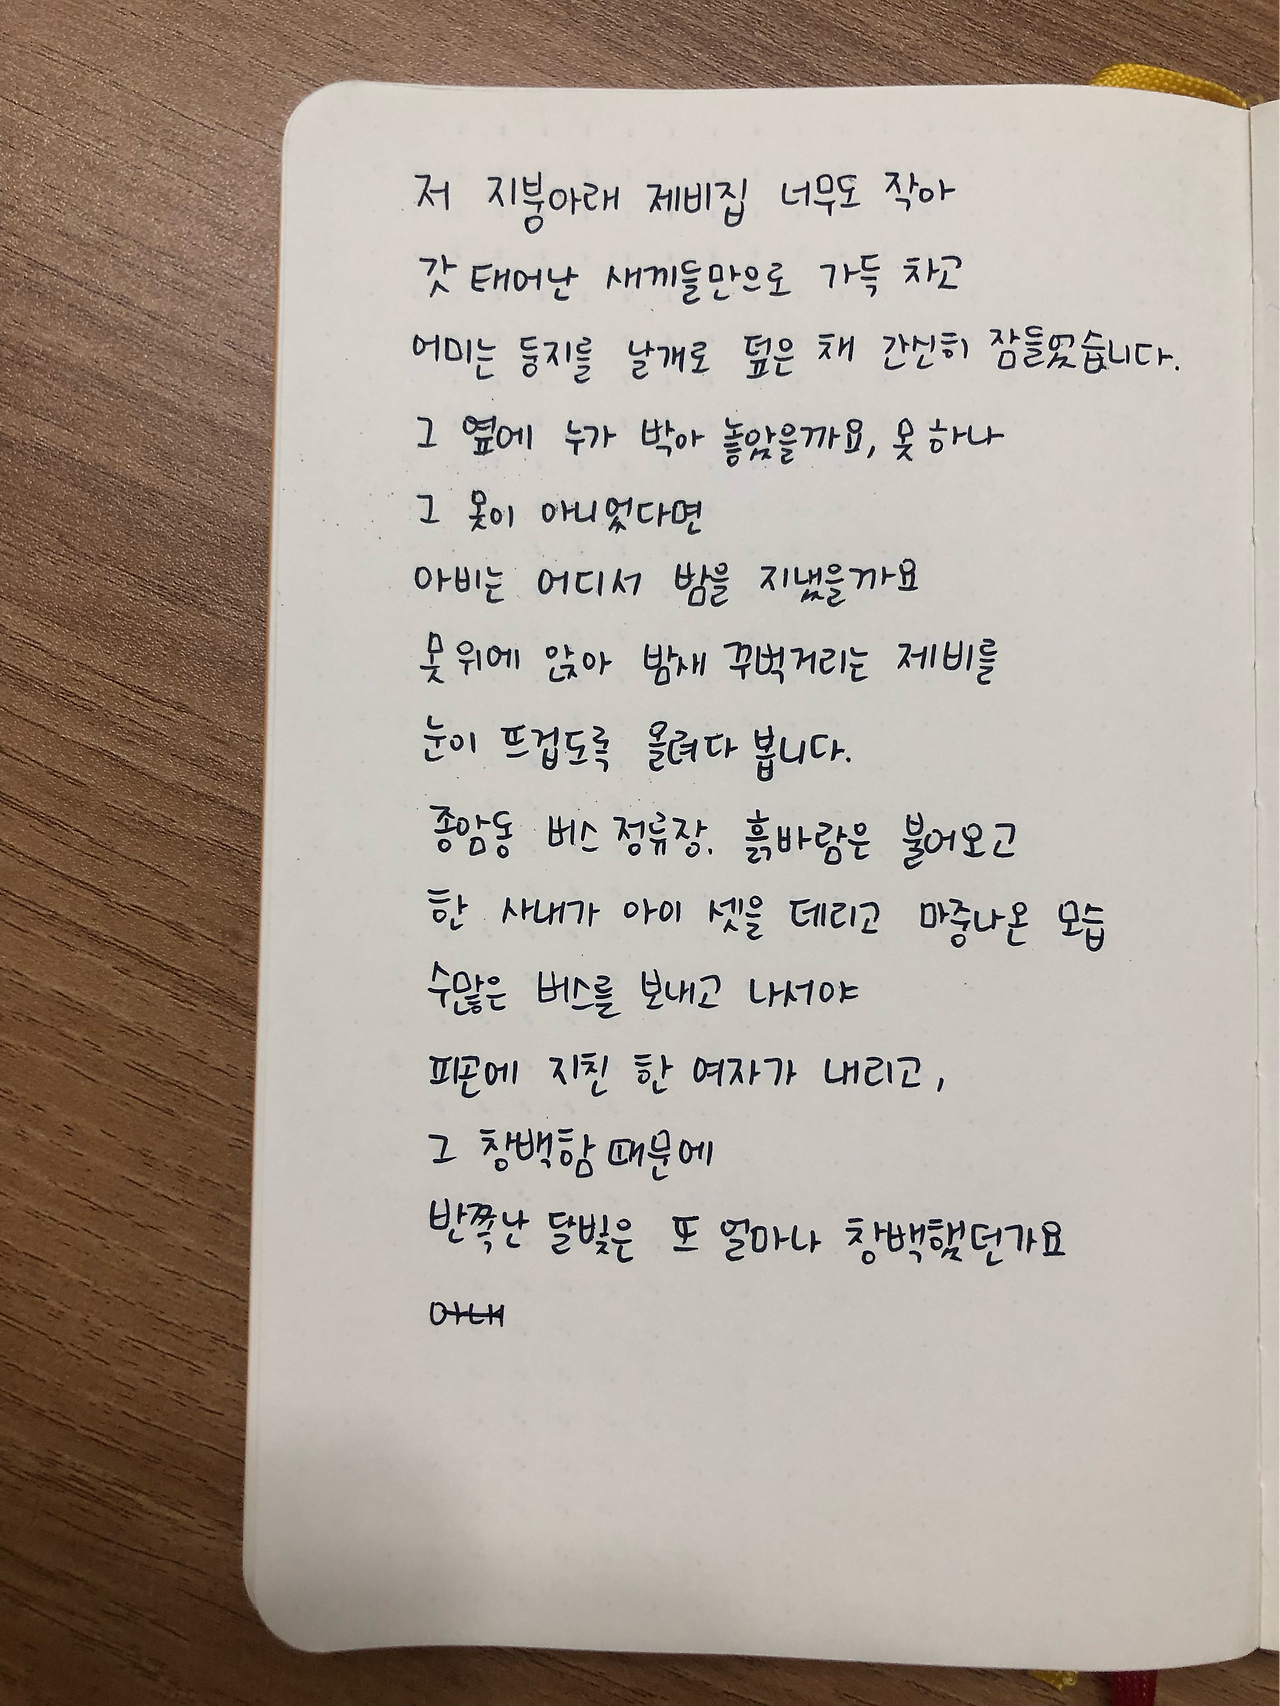 저 지붕아래 제비집 너무도 작아
갓 태어난 새끼들만으로 가득 차고
어미는 둥지를 날개로 덮은 채 간신히 잠들었습니다.
그 옆에 누가 박아 놓았을까요, 못 하나
그 못이 아니었다면
아비는 어디서 밤을 지냈을까요
못 위에 앉아 밤새 꾸벅거리는 제비를
눈이 뜨겁도록 올려다 봅니다.
종암동 버스 정류장. 흙바람은 불어오고
한 사내가 아이 셋을 데리고 마중나온 모습
수많은 버스를 보내고 나서야
피곤에 지친 한 여자가 내리고,
그 창백함 때문에
반쪽난 달빛은 또 얼마나 창백했던가요
아내